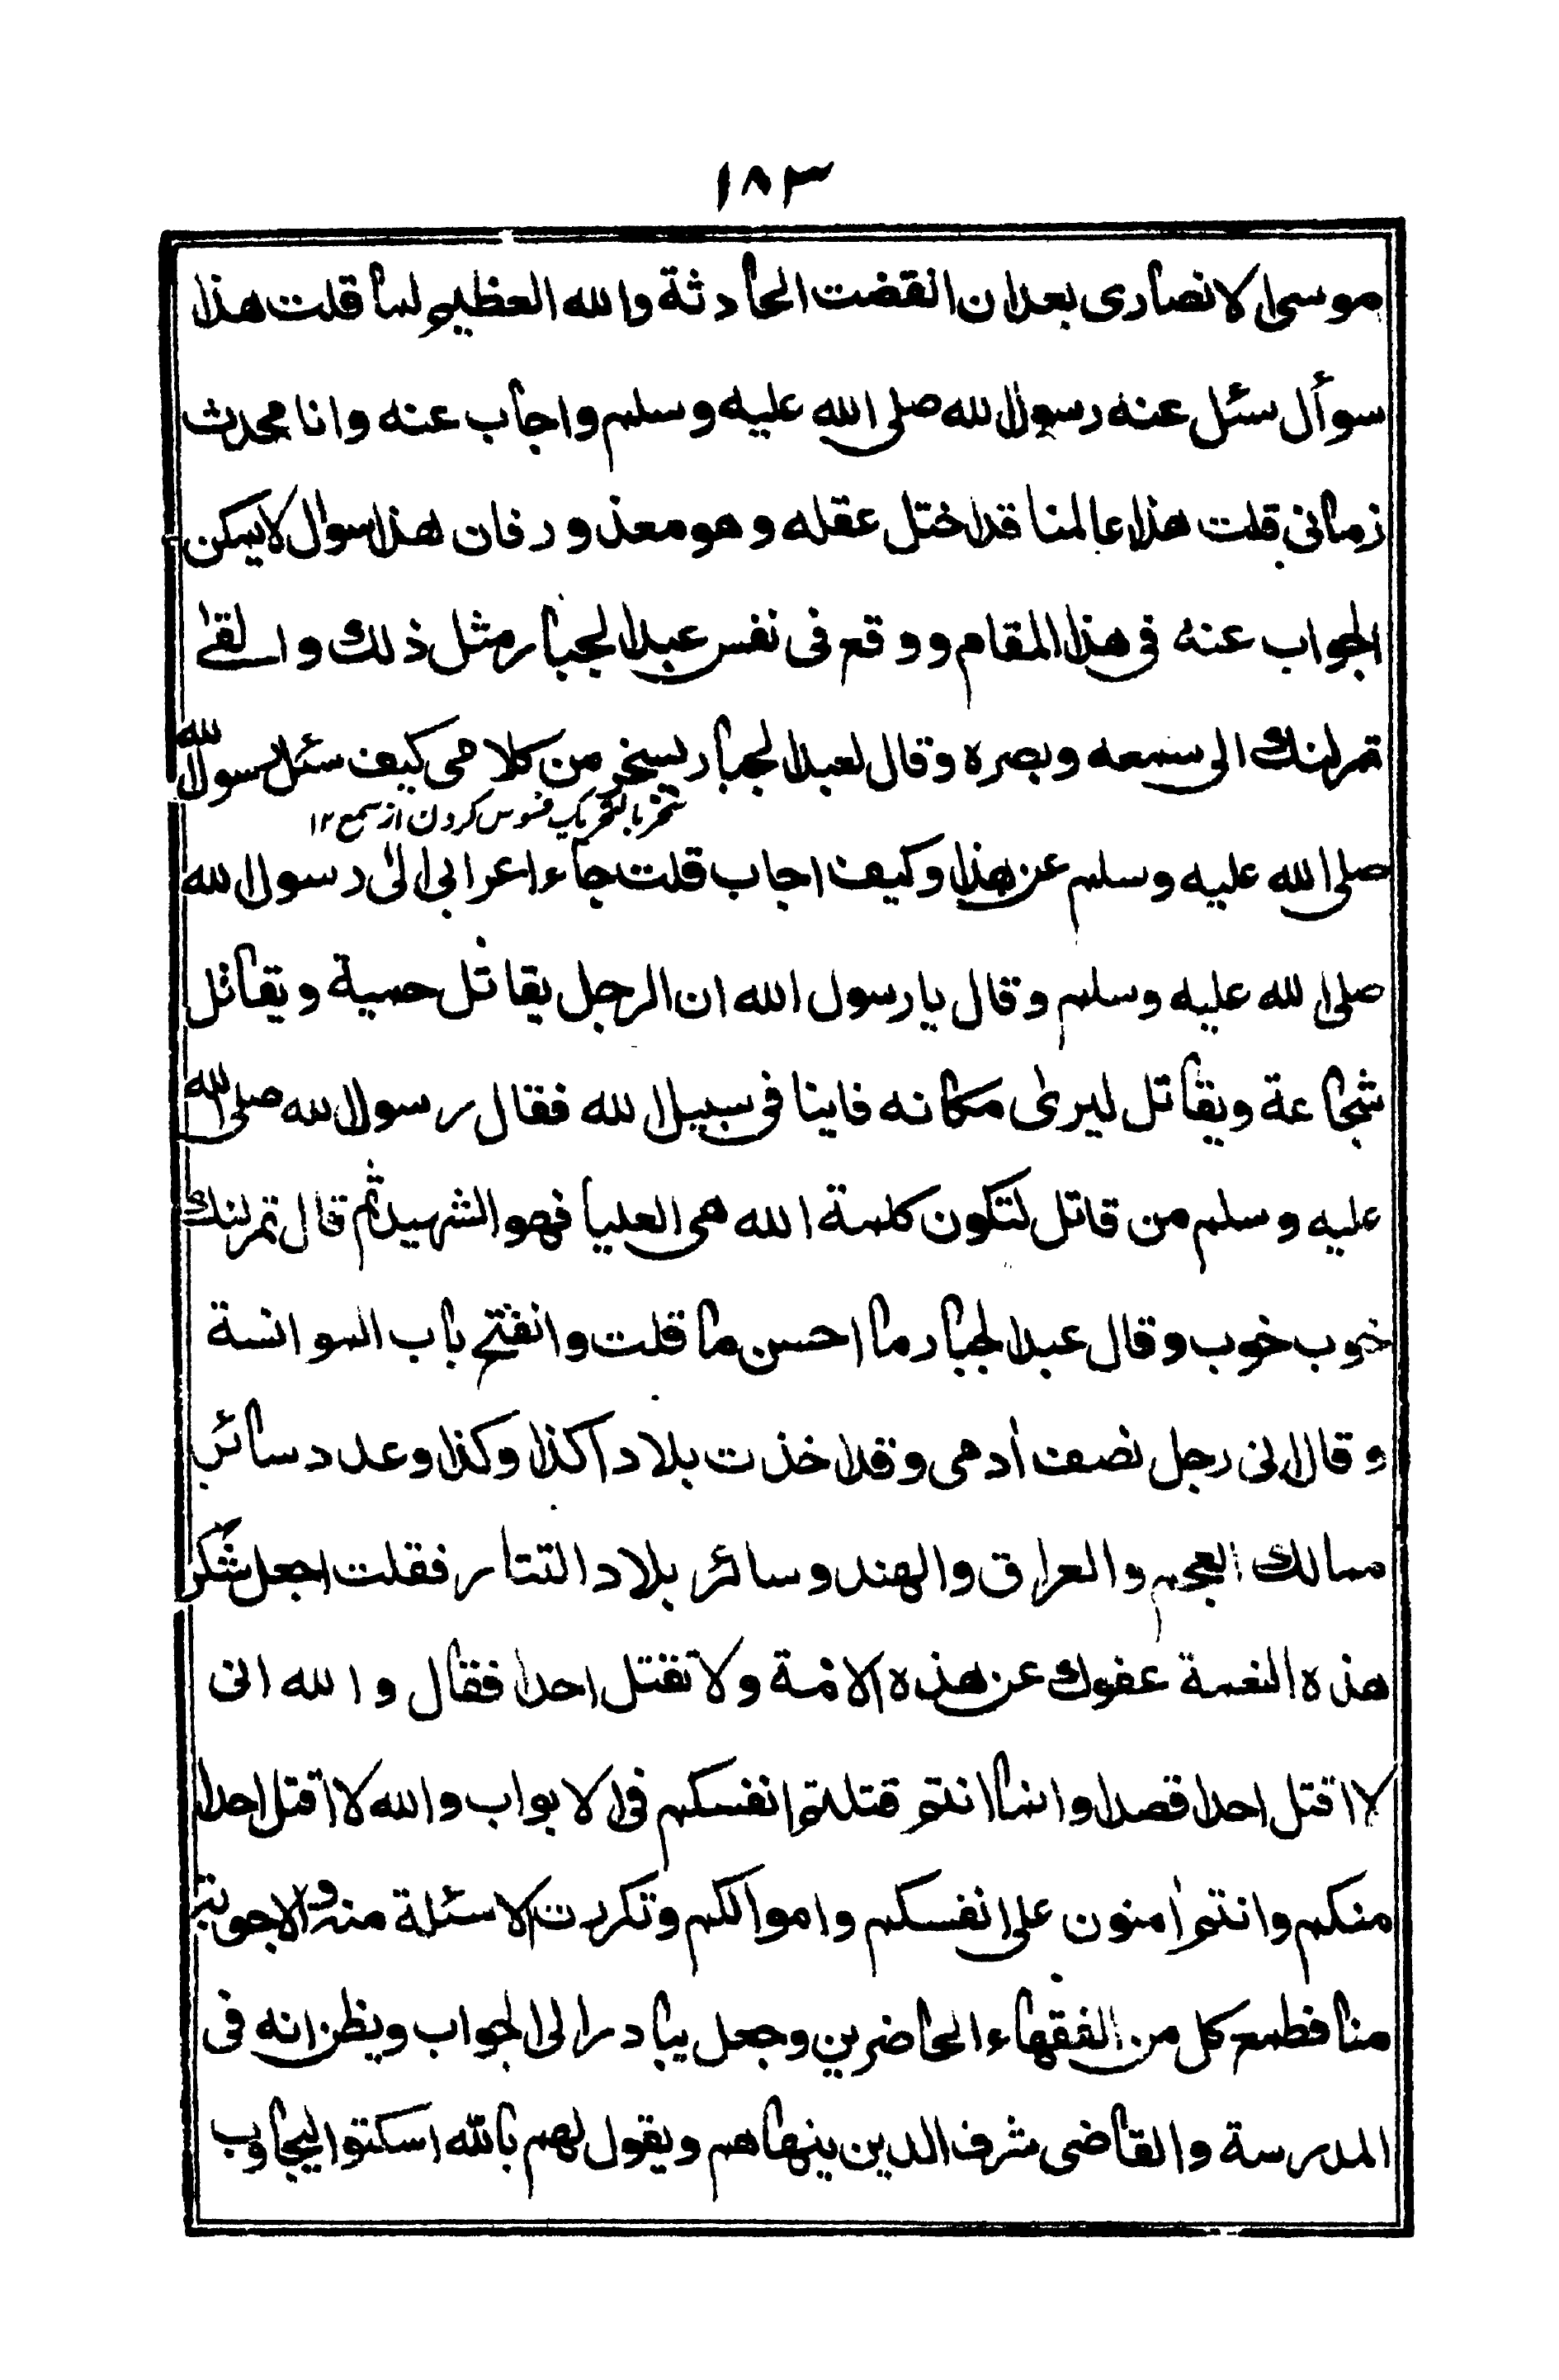 ١٨٣
موسى الانصارى بعد ان انقضت الحادثة والله العظيم لما قلت هذا
سوأل سئل عنه رسول الله صلى الله عليه وسلم واجاب عنه وانا محدث
زمانى قلت هذا عالمنا قد اختل عقله وهو معذور فان هذا سوال لا يمكن
الجواب عنه فى هذا المقام ووقع فى نفس عبد الجبار مثل ذلك والقى
تمرلنك الى سمعه وبصره وقال لعبد الجبار يسخر من كلامى كيف سئل رسول الله
تسخر بالتحريك فسوس كردن از سمع ١٢
صلى الله عليه وسلم عن هذا وكيف اجاب قلت جاء اعرابى الى رسول الله
صلى الله عليه وسلم وقال يا رسول الله ان الرجل يقاتل حمية ويقاتل
شجاعة ويقاتل ليرى مكانه فاينا فى سبيل الله فقال رسول الله صلى الله
عليه وسلم من قاتل لتكون كلمة الله هى العليا فهو الشهيد ثم قال تمرلنك
خوب خوب وقال عبد الجبار ما احسن ما قلت وانفتح باب الموانسة
وقال انى رجل نصف أدمى وقد اخذت بلادا كذا وكذا وعدد سائر
ممالك العجم والعراق والهند وسائر بلاد التتار فقلت اجعل شكر
هذه النعمة عفوك عن هذه الامة ولا تقتل احدا فقال والله انى
لا اقتل احدا قصدا وانما انتم قتلتم انفسكم فى الابواب والله لا اقتل احدا
منكم وانتم أمنون على انفسكم واموالكم وتكررت الاسئلة منه والاجوبة
منا فطمع كل من الفقهاء الحاضرين وجعل يبادر الى الجواب ويظن انه فى
المدرسة والقاضى شرف الدين ينهاهم ويقول لهم بالله اسكتوا ليجاوب